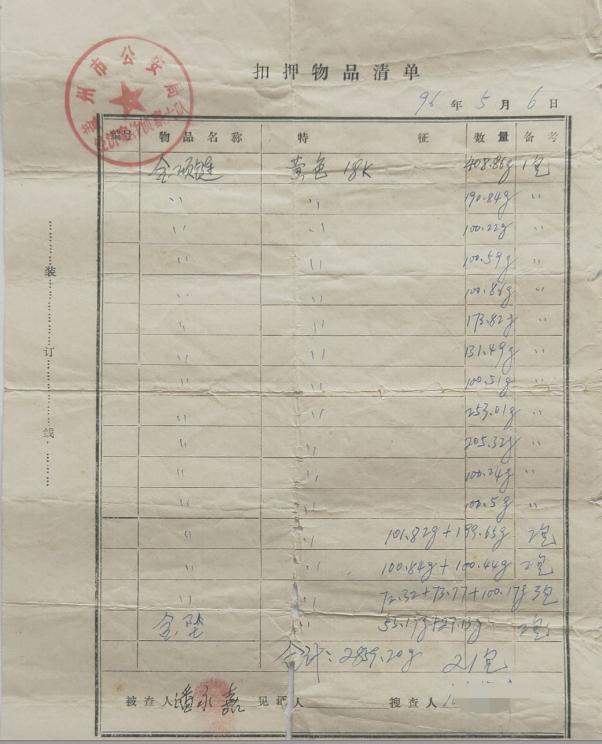 扣押物品清单
96年5月6日
州市公安局
编号 物品名称 特征 数量 备考
金项链 黄色 18K 408.86g 1包
〃 〃 190.84g 〃
〃 〃 100.22g 〃
〃 〃 100.59g 〃
〃 〃 〃
〃 〃 173.82g 〃
〃 〃 131.49g 〃
〃 〃 100.51g 〃
〃 〃 253.01g 〃
〃 〃 205.32g 〃
〃 〃 100.24g 〃
〃 〃 100.5g 〃
〃 〃 101.82g+199.63g 2包
〃 〃 100.84g+100.44g 2包
〃 〃 72.32+73.77+100.17g 3包
金坠 2包
合计:2859.20g 21包
被查人 潘永嘉 见证人 搜查人
装订线